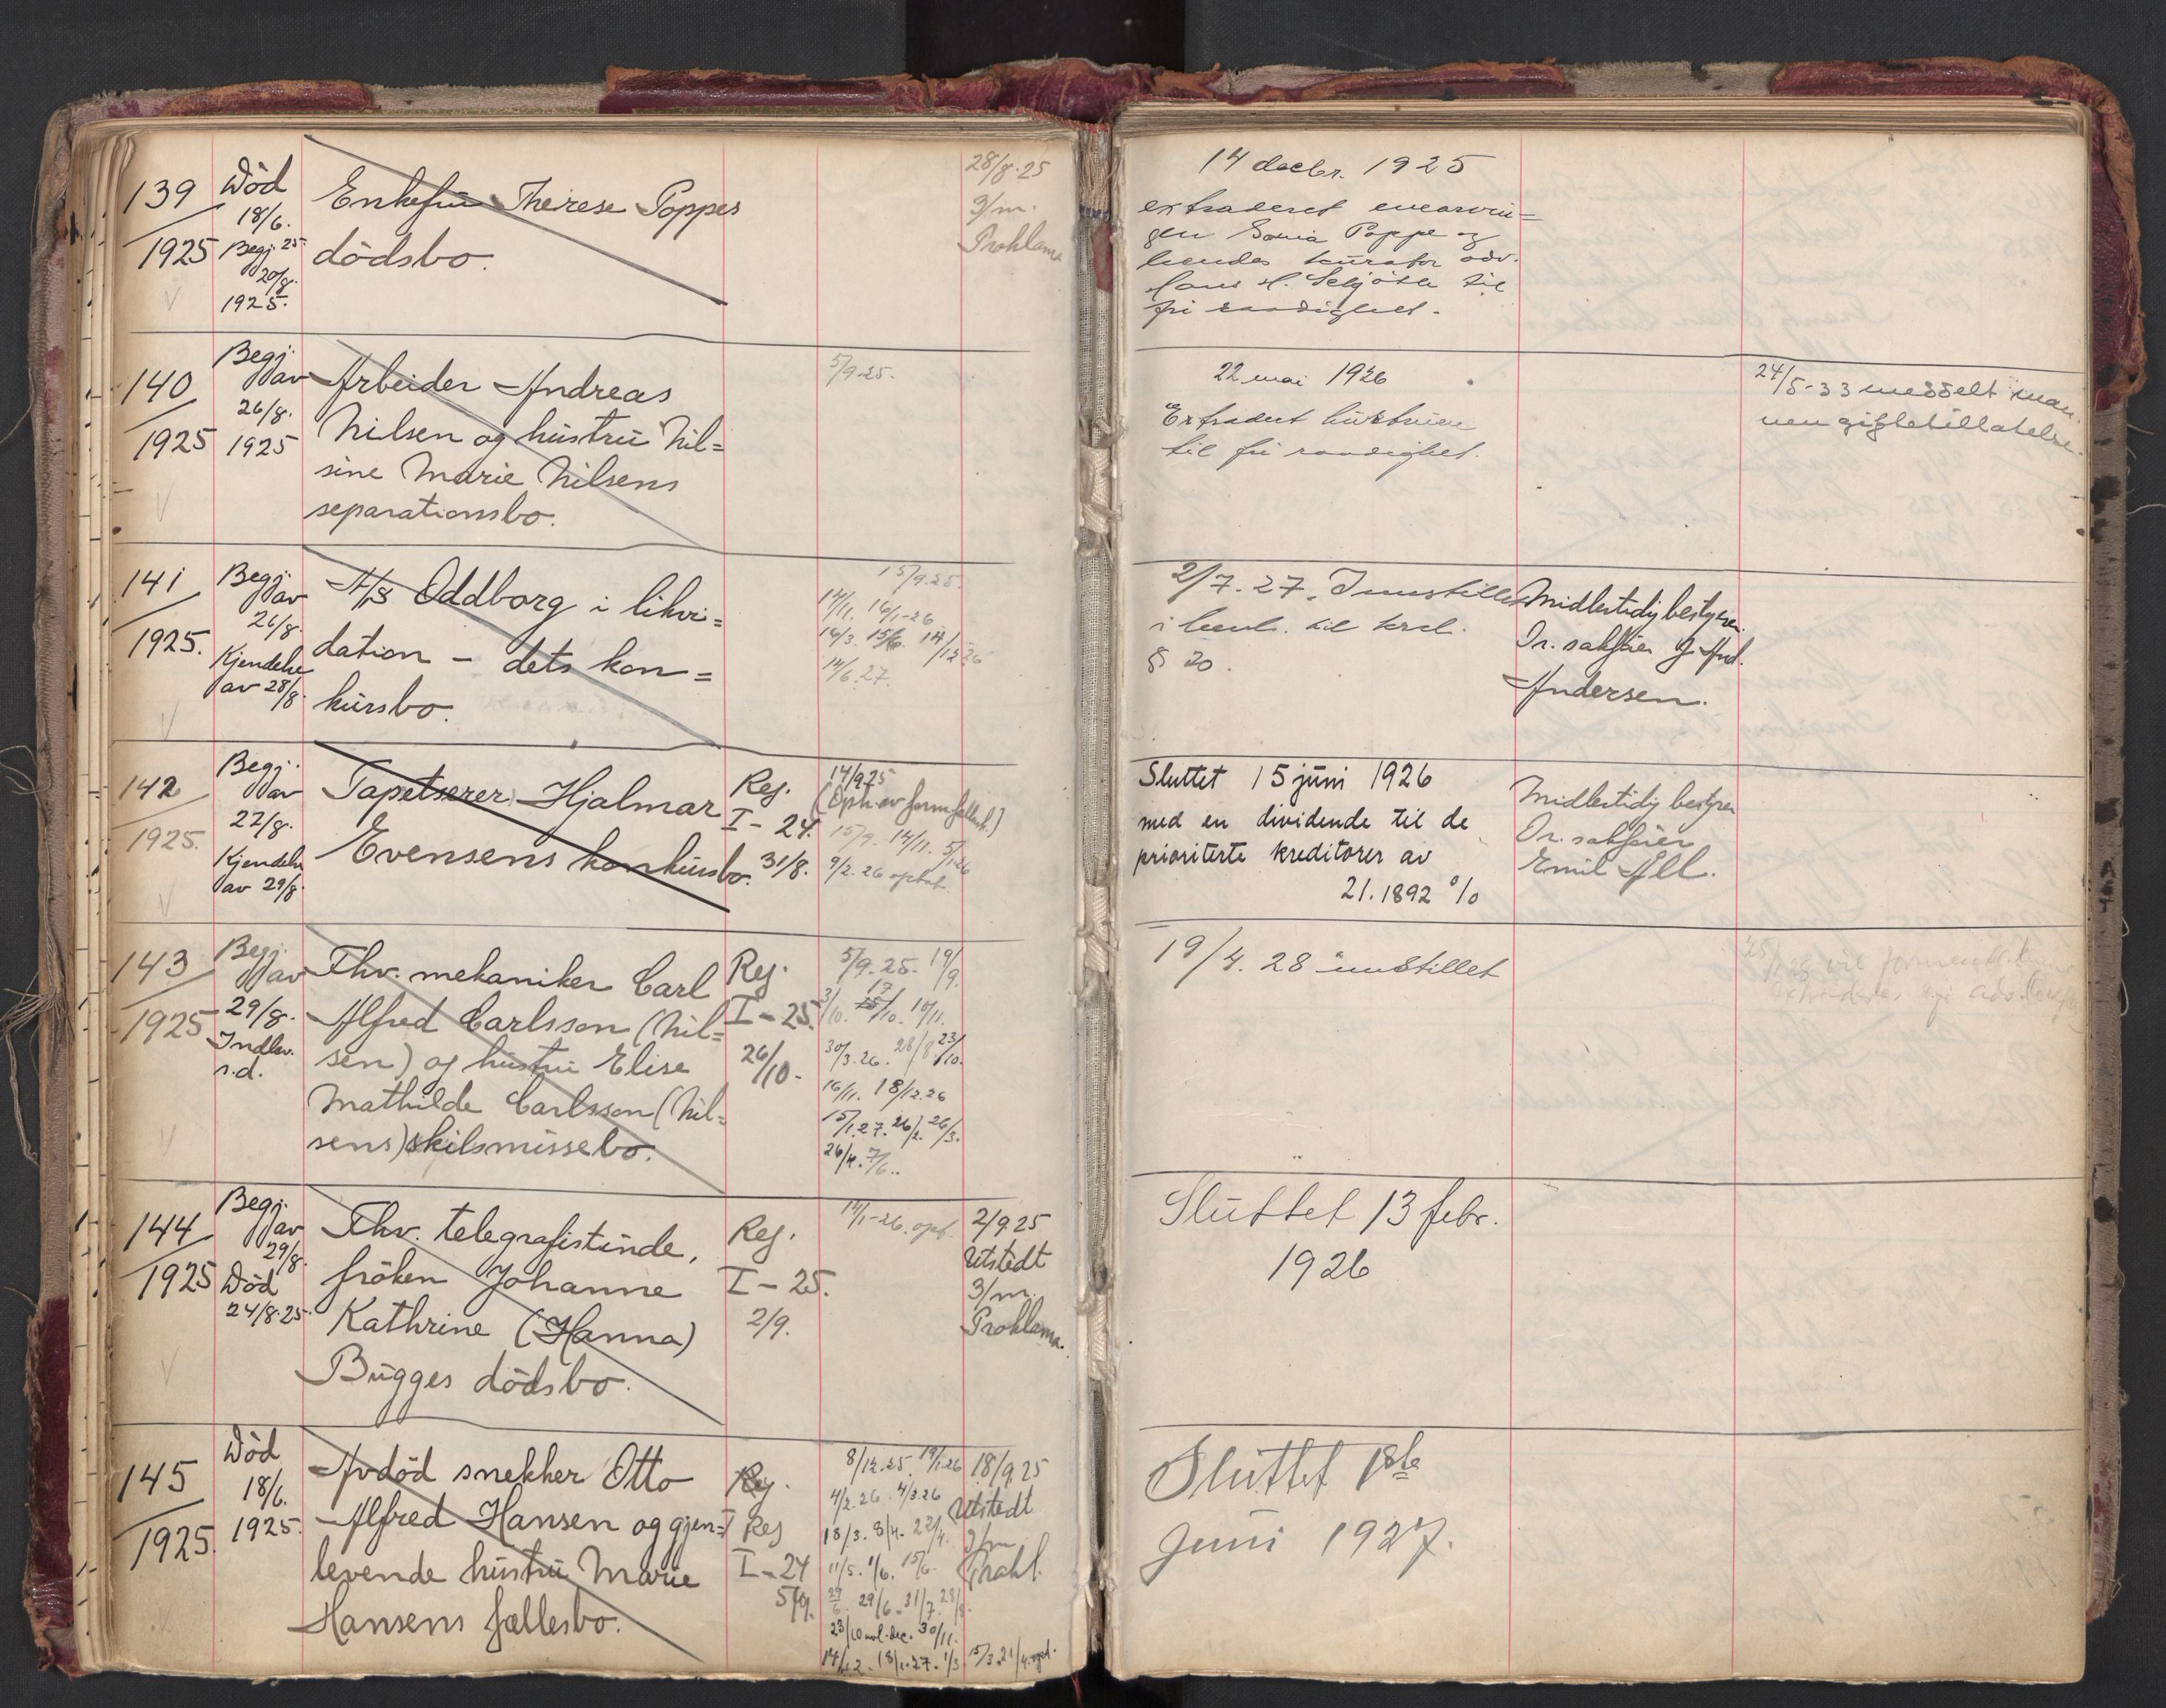 139
1925
Död
18/6.
Begj. 25
20/8.
1925.
Enkefru Therese Poppes
dödsbo.
28/8.25
3/m.
Proklama
14 decbr. 1925
extraderet enearvin=
gen Poppe og
hendes kurator adv.
til
fri raadighet.
140
1925
Begj.
av
26/8.
1925
Arbeider Andreas
Nilsen og hustru Nil=
sine Marie Nilsens
separationsbo.
5/9.25.
22 mai 1926
Extradert hustruen
til fri raadighet.
24/5-33 meddelt man
nen giftetillatelse.
141
1925.
Begj.
av
26/8.
Kjendelse
av 28/8.
A/S Oddborg i likvi=
dation - dets kon=
kursbo.
15/9.25.
14/11. 16/1-26
16/3. 15/6. 14/12 26
14/6.27.
2/7.27. Innstillet
i henh. til krel.
§ 20.
Midlertidig bestyrer
Or. sakfører
Andersen.
142
1925.
Begj.
av
27/8.
Kjendelse
av 29/8
Tapetserer Hjalmar
Evensens konkursbo.
Reg.
I - 24.
31/8.
14/9.25
15/9. 14/11. 5/1-26
9/2.26 opbet.
Sluttet 15 juni 1926
med en dividende til de
prioriterte kreditorer av
21.1892 %
Midlertidig bestyrer
Or. sakfører
Emil All.
143
1925
Begj.
av
29/8.
Indlev.
s.d.
Fhv. mekaniker Carl
Alfred Carlsson (Nil=
sen) og hustru Elise
Mathilde Carlsson (Nil=
sens) skilsmissebo.
Reg.
I - 25.
26/10.
5/9.25. 19/9.
30/3.26. 28/8. 23/10.
16/11. 18/12.26
15/1.27. 26/2. 26/3.
26/4. 7/6..
19/4. 28 innstillet
144
1925
Begj.
av
29/8.
Död
24/8.25.
Fhv. telegrafistinde,
fröken Johanne
Kathrine (Hanna)
Bugges dödsbo.
Reg.
I - 25.
2/9.
14/1-26. opb.
2/9 25
Utstedt
3/m.
Proklama.
Sluttet 13 febr.
1926
145
1925.
Död
18/6.
1925.
Avdöd snekker Otto
Alfred Hansen og gjen=
levende hustru Marie
Hansens fællesbo.
Reg.
Reg
I - 24
5/9.
8/12.25. 19/1.26
4/2.26. 4/3.26
18/3. 8/4. 22/4.
11/5. 1/6. 15/6.
29/6. 31/7.
23/10 30/11.
14/12. 18/1.27. 1/3 15/3. 21/4.
18/9.25
Utstedt
3/m
Prokl.
Sluttet 18de
juni 1927.